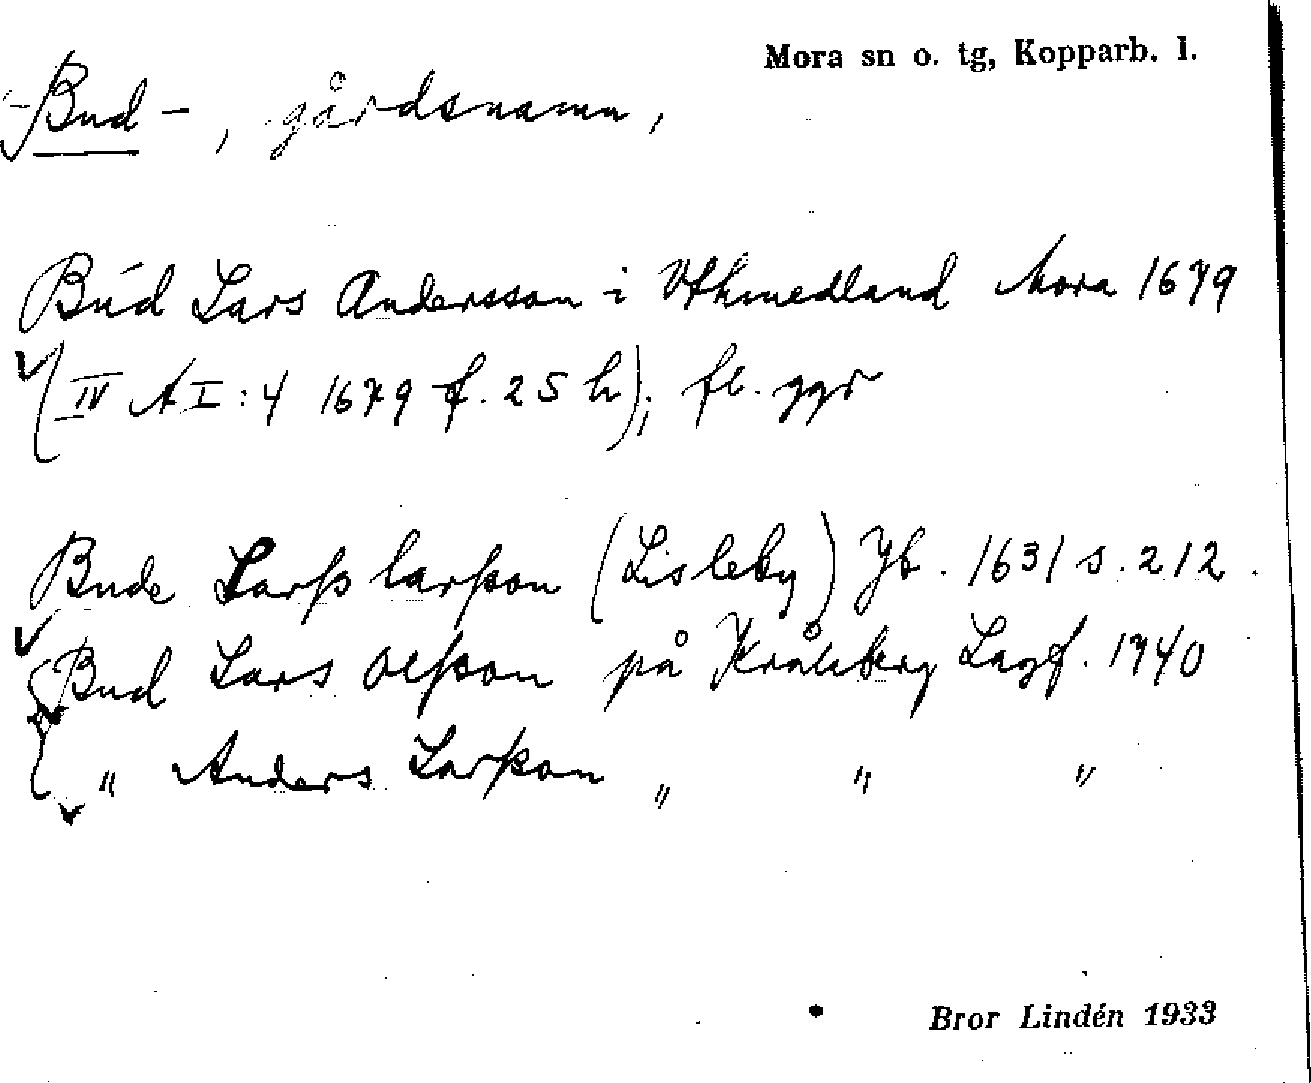 Mora sn o. tg, Kopparb. l.
Bud-, gårdsnamn,
Búd Lars Andersson i Vthmedland Mora 1679
(IV A I:4 1679 f. 25 h); fl. ggr
Bude Larß larßon (Lisleby) Jb. 1631 s. 212.
Bud Lars Olßon på Kråkberg Lagf. 1740
" Anders Larßon " " "
Bror Lindén 1933